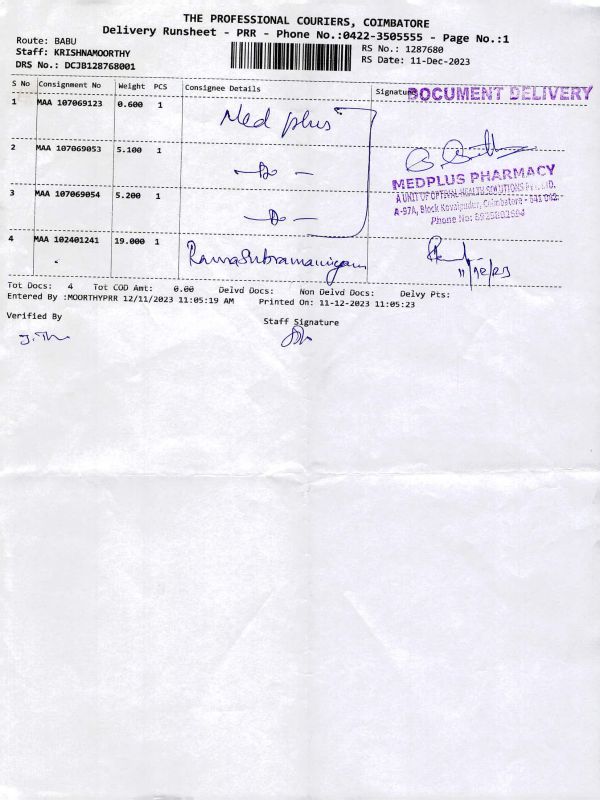 THE PROFESSIONAL COURIERS, COIMBATORE
Delivery Runsheet - PRR - Phone No.:0422-3505555 - Page No.:1
Route: BABU
RS No.: 1287680
Staff: KRISHNAMOORTHY
RS Date: 11-Dec-2023
DRS No.: DCJB128768001
S No Consignment No Weight PCS Consignee Details Signature
DOCUMENT DELIVERY
1 MAA 107069123 0.600 1 Med plus
2 MAA 107069053 5.100 1 -Do-
MEDPLUS PHARMACY
A UNIT OF OPTIVAL HEALTH SOLUTIONS Pvt. LTD.
A-97A, Block Kovaipudur, Coimbatore - 641 042.
Phone No:
3 MAA 107069054 5.200 1 -Do-
4 MAA 102401241 19.000 1 Ramasubramaniyam
11/12/23
Tot Docs: 4 Tot COD Amt: 0.00 Delvd Docs: Non Delvd Docs: Delvy Pts:
Entered By :MOORTHYPRR 12/11/2023 11:05:19 AM Printed On: 11-12-2023 11:05:23
Verified By
Staff Signature